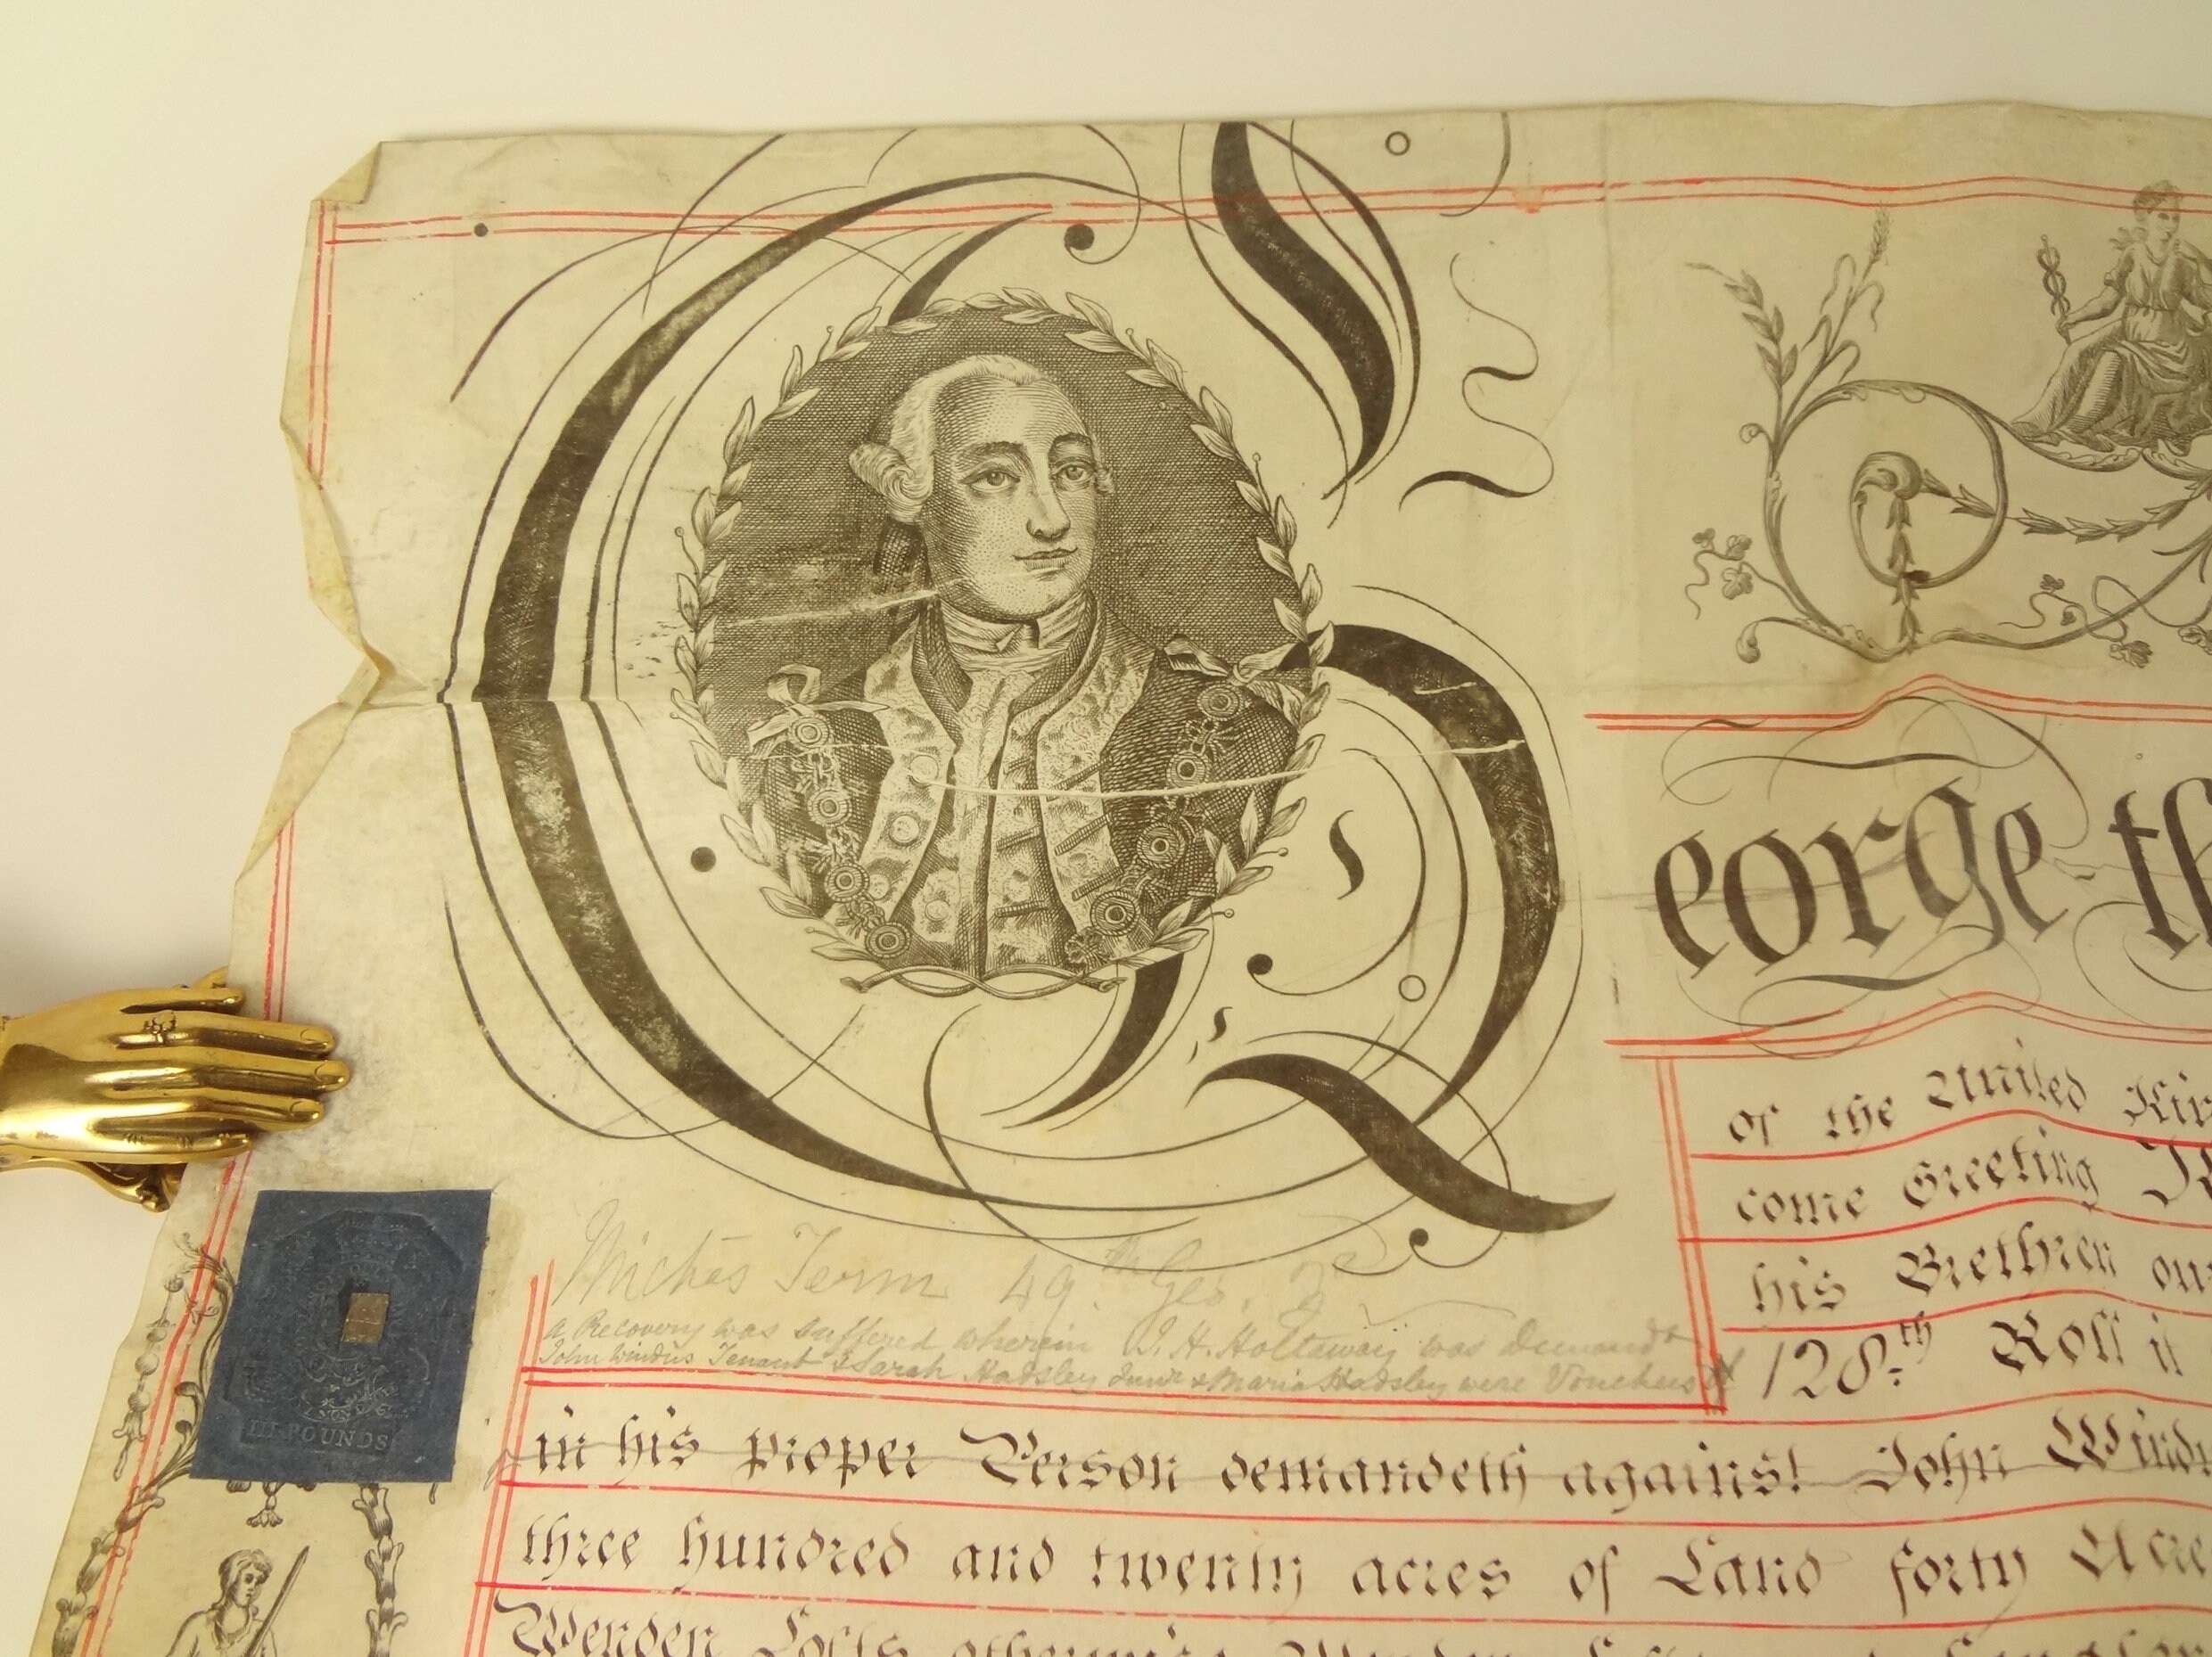 George th
of the United Kin
come Greeting
his Brethren our
128th Roll it
Michas Term 49th Geo. 3rd
a Recovery was suffered wherein J. H. Holtaway was Demandt
John Windus Tenant & Sarah Hadsley Junr & Maria Hadsley were Vouchees
III POUNDS
in his proper Person demandeth against John Windu
three hundred and twenty acres of Land forty Acre
Wenden Lofts otherwise